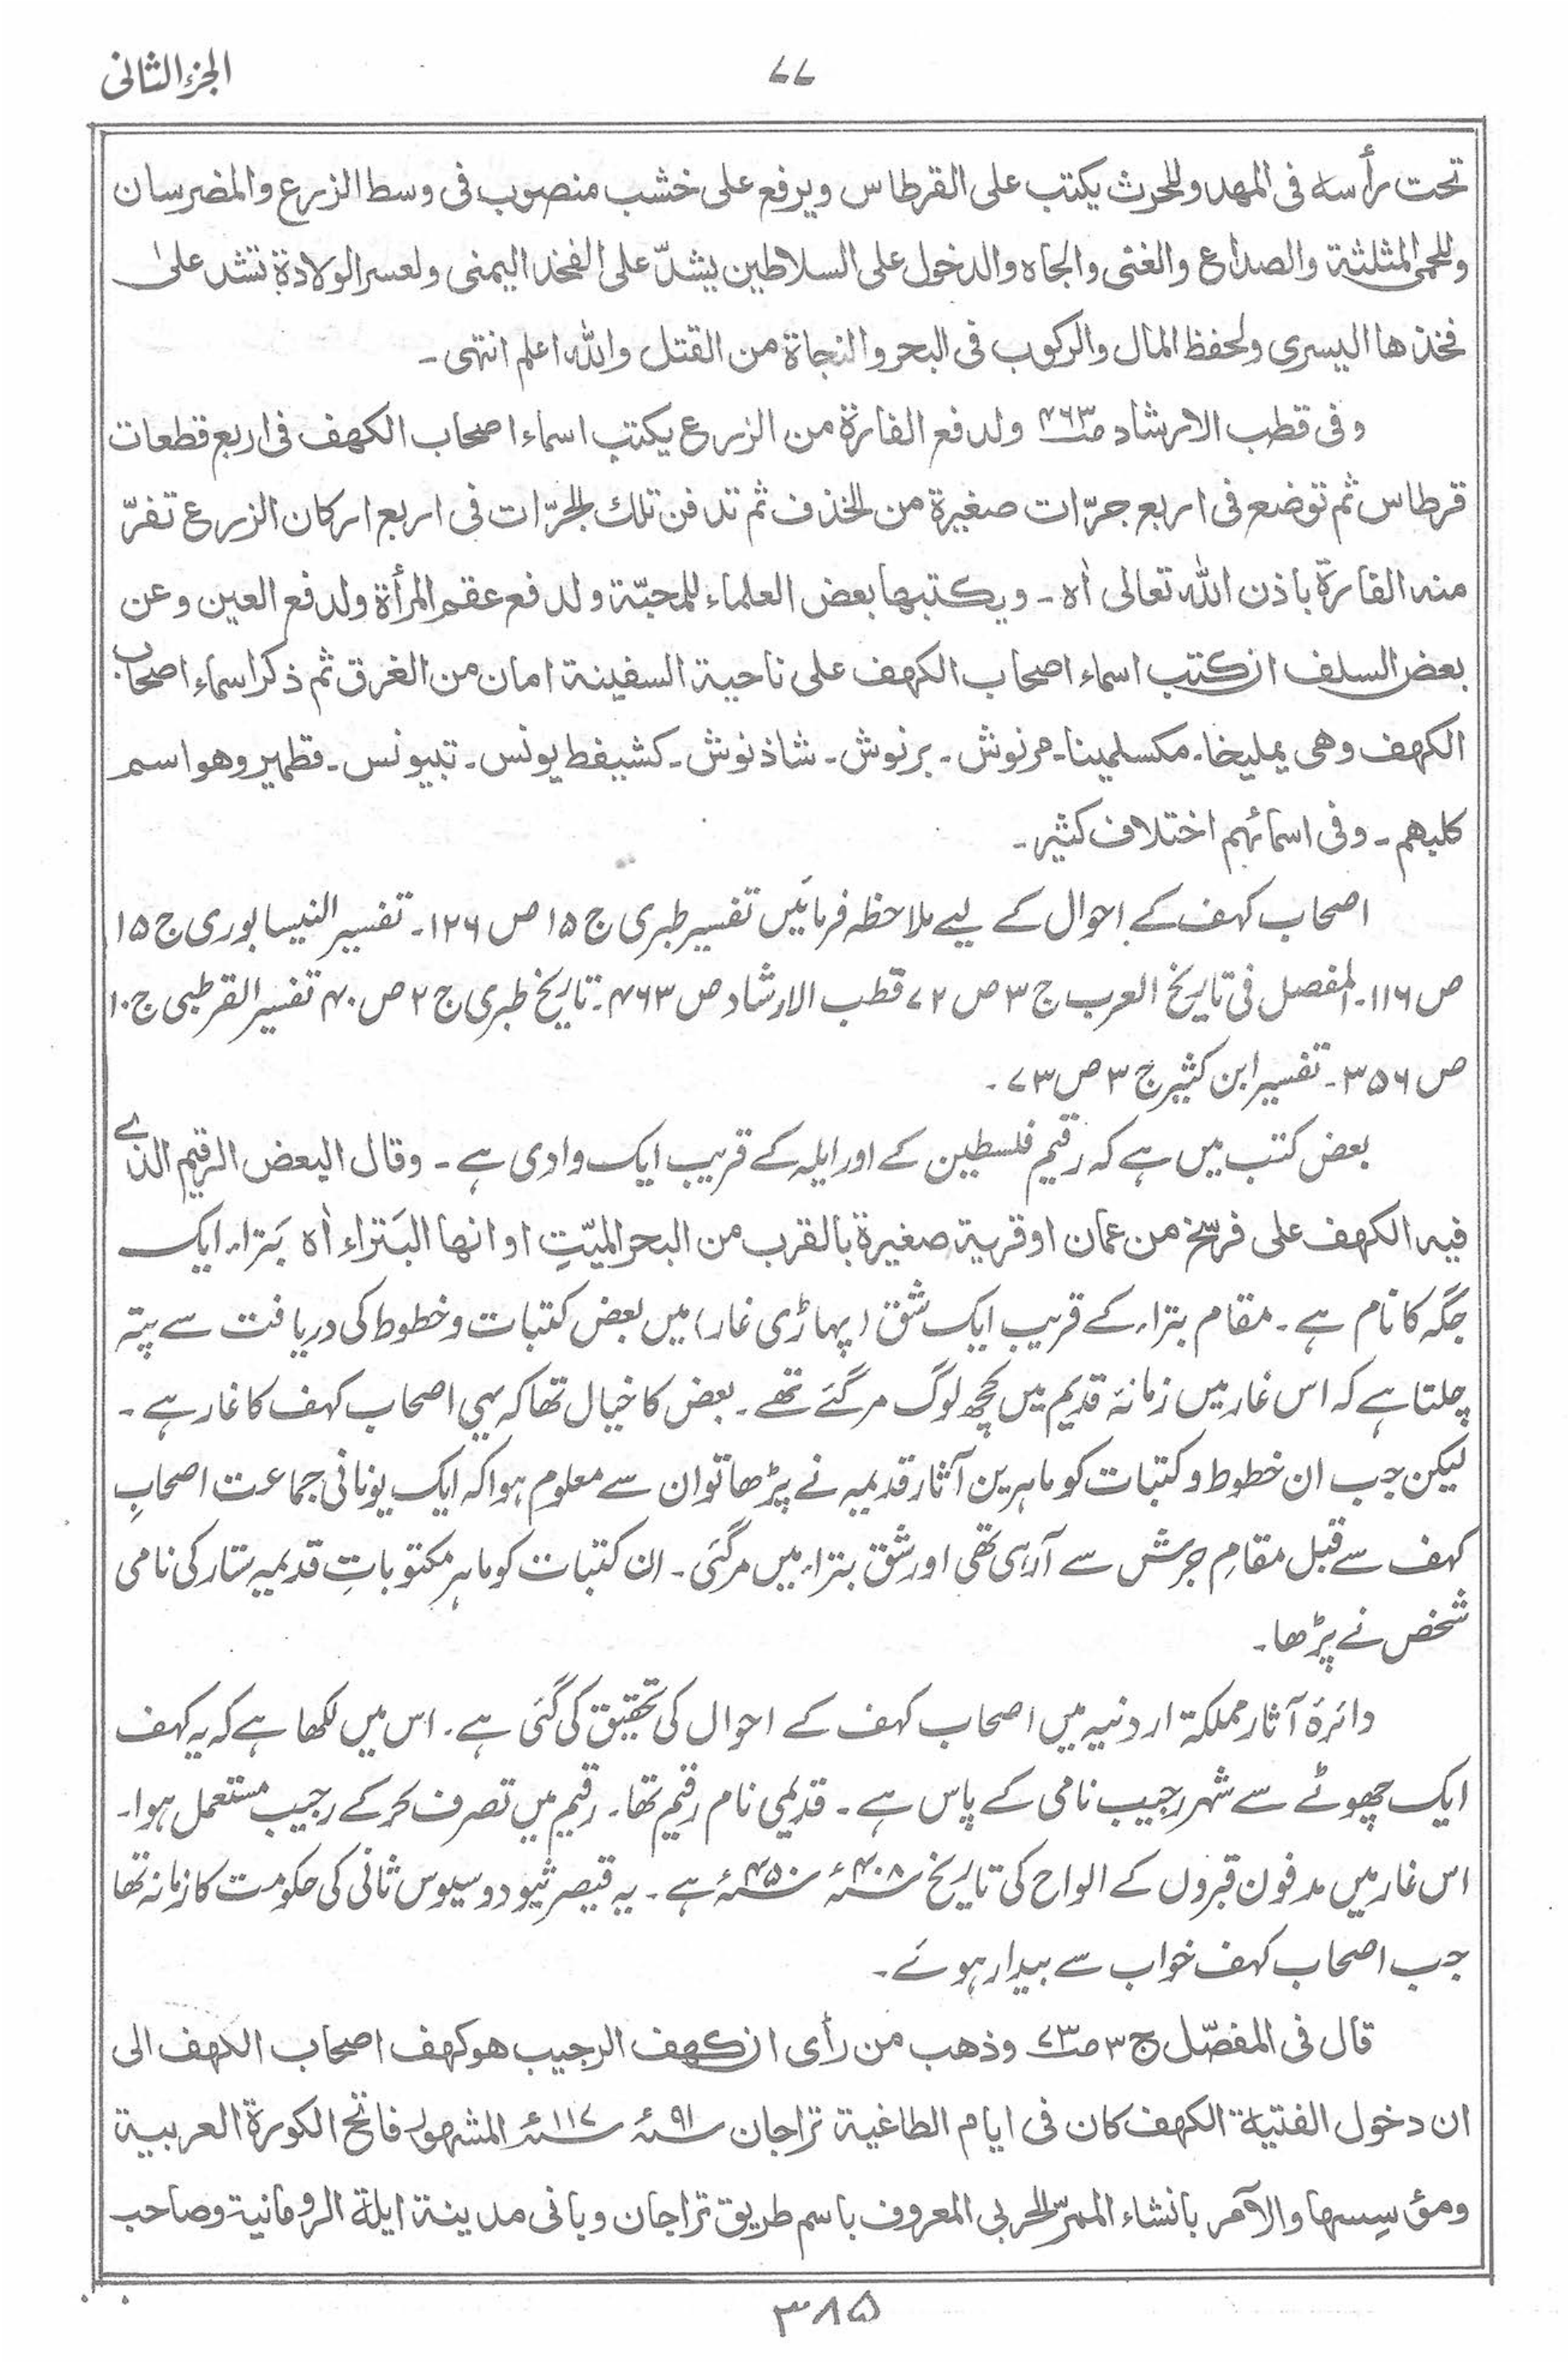 الجزء الثانی
۷۷
تحت رأسہ فی المھد وللحرث یکتب علی القرطاس ویرفع علی خشب منصوب فی وسط الزرع والمضرسان
وللحمی المثلثة والصداع والغنی والجاہ والدخول علی السلاطین یشدّ علی الفخذ الیمنی ولعسر الولادة تشد علیٰ
فخذھا الیسری ولحفظ المال والرکوب فی البحر والنجاة من القتل واللہ اعلم انتھی ۔
وفی قطب الارشاد ص۴۶۳ ولدفع الفارة من الزرع یکتب اسماء اصحاب الکھف فی اربع قطعات
قرطاس ثم توضع فی اربع جرّات صغیرة من الخذف ثم تدفن تلك الجرّات فی اربع ارکان الزرع تفرّ
منہ الفارة باذن اللہ تعالی اٰہ ۔ ویکتبھا بعض العلماء للمحبّة ولدفع عقم المرأة ولدفع العین وعن
بعض السلف ان کتب اسماء اصحاب الکھف علی ناحیة السفینة امان من الغرق ثم ذکر اسماء اصحاب
الکھف وھی یملیخا ۔ مکسلمینا ۔ مرنوش ۔ برنوش ۔ شاذنوش ۔ کشیفط یونس ۔ تبیونس ۔ قطمیر وھو اسم
کلبھم ۔ وفی اسمائھم اختلاف کثیر ۔
اصحاب کہف کے احوال کے لیے ملاحظہ فرمائیں تفسیر طبری ج ۱۵ ص ۱۲۶ ۔ تفسیر النیسابوری ج ۱۵
ص ۱۱۶ ۔ المفصل فی تاریخ العرب ج ۳ ص ۷۲ قطب الارشاد ص ۴۶۳ ۔ تاریخ طبری ج ۲ ص ۴۰ تفسیر القرطبی ج ۱۰
ص ۳۵۶ ۔ تفسیر ابن کثیر ج ۳ ص ۷۳ ۔
بعض کتب میں ہے کہ رقیم فلسطین کے اور ایلہ کے قریب ایک وادی ہے ۔ وقال البعض الرقیم الذی
فیہ الکھف علی فرسخ من عمان او قریة صغیرة بالقرب من البحر المیّتِ او انھا البَتراء اٰہ بَتراء ایک
جگہ کا نام ہے ۔ مقام بتراء کے قریب ایک شق (پہاڑی غار) میں بعض کتبات وخطوط کی دریافت سے پتہ
چلتا ہے کہ اس غار میں زمانۂ قدیم میں کچھ لوگ مر گئے تھے ۔ بعض کا خیال تھا کہ یہی اصحاب کہف کا غار ہے ۔
لیکن جب ان خطوط و کتبات کو ماہرین آثار قدیمہ نے پڑھا تو ان سے معلوم ہوا کہ ایک یونانی جماعت اصحابِ
کہف سے قبل مقامِ جرش سے آرہی تھی اور شق بتراء میں مر گئی ۔ ان کتبات کو ماہر مکتوباتِ قدیمیہ ستار کی نامی
شخص نے پڑھا ۔
دائرۂ آثار مملکۃ اردنیہ میں اصحاب کہف کے احوال کی تحقیق کی گئی ہے ۔ اس میں لکھا ہے کہ یہ کہف
ایک چھوٹے سے شہر رجیب نامی کے پاس ہے ۔ قدیمی نام رقیم تھا ۔ رقیم میں تصرف کر کے رجیب مستعمل ہوا ۔
اس غار میں مدفون قبروں کے الواح کی تاریخ ۴۰۸ء ۴۵۰ء ہے ۔ یہ قیصر ثیودوسیوس ثانی کی حکومت کا زمانہ تھا
جب اصحاب کہف خواب سے بیدار ہوئے ۔
قال فی المفصّل ج ۳ ص۷۳ وذھب من رأی ان کھف الرجیب ھو کھف اصحاب الکھف الی
ان دخول الفتیة الکھف کان فی ایام الطاغیة تراجان ۹۱ء ۱۱۷ء المشھور فاتح الکورة العربیة
ومؤسِسھا والآمر بانشاء الممرّ الحربی المعروف باسم طریق تراجان وبانی مدینة ایلة الرومانیة وصاحب
۳۸۵